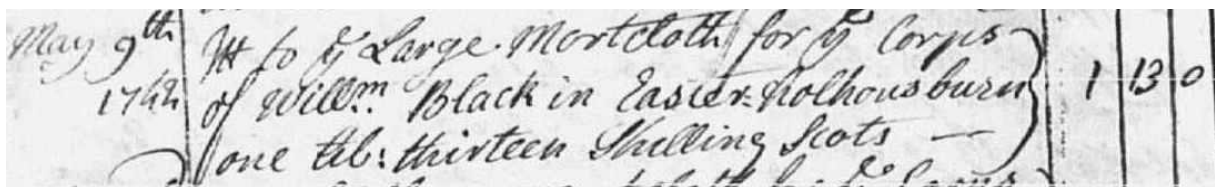 May 9th
1742
It to ye Large Mortcloth for ye Corps
of Willm. Black in Easter-holhousburn
one lib: thirteen Shilling Scots —
1 13 0